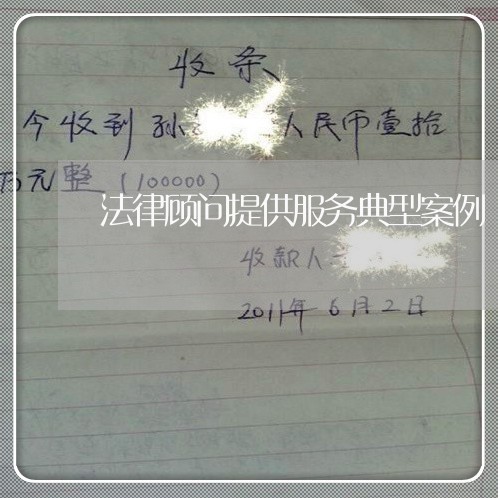 收条
今收到孙 人民币壹拾
万元整(100000)
法律顾问提供服务典型案例
收款人
2011年6月2日